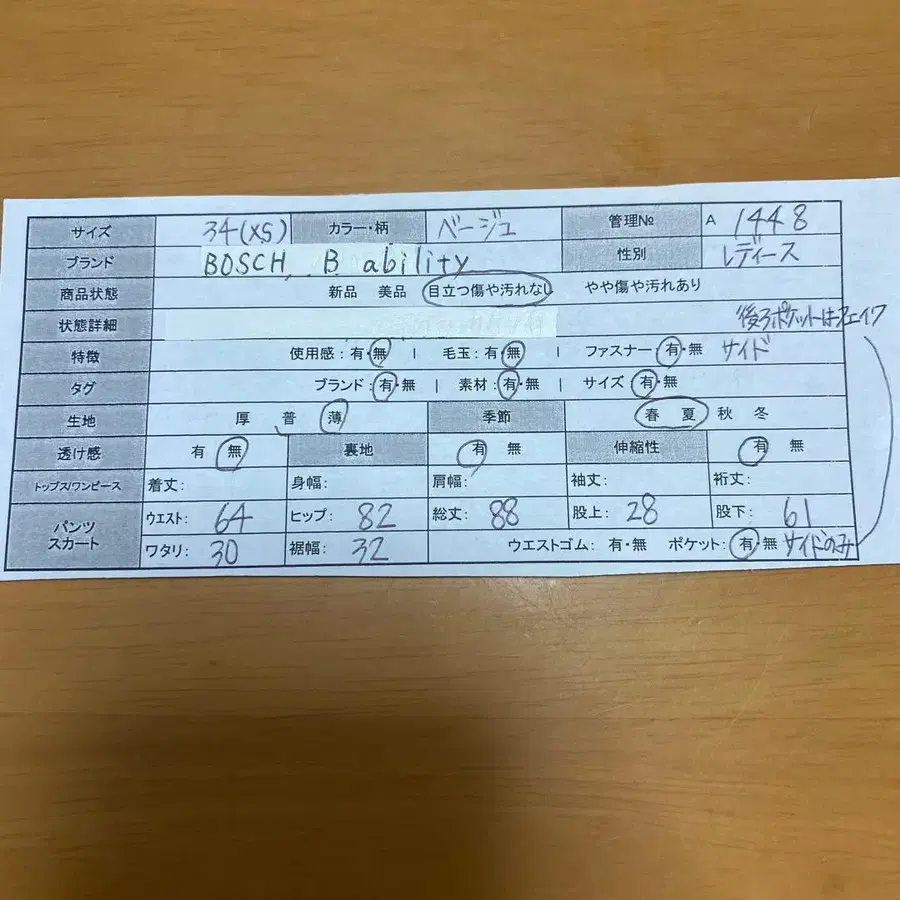 サイズ 34(XS) カラー・柄 ベージュ 管理№ A 1448
ブランド BOSCH, B ability 性別 レディース
商品状態 新品 美品 目立つ傷や汚れなし やや傷や汚れあり
状態詳細 後ろポケットはフェイク
特徴 使用感:有・無 | 毛玉:有・無 | ファスナー 有・無 サイド
タグ ブランド:有・無 | 素材:有・無 | サイズ 有・無
生地 厚 普 薄 季節 春 夏 秋 冬
透け感 有 無 裏地 有 無 伸縮性 有 無
トップス/ワンピース 着丈: 身幅: 肩幅: 袖丈: 裄丈:
パンツ スカート ウエスト: 64 ヒップ: 82 総丈: 88 股上: 28 股下: 61
ワタリ: 30 裾幅: 32 ウエストゴム: 有・無 ポケット: 有・無 サイドのみ